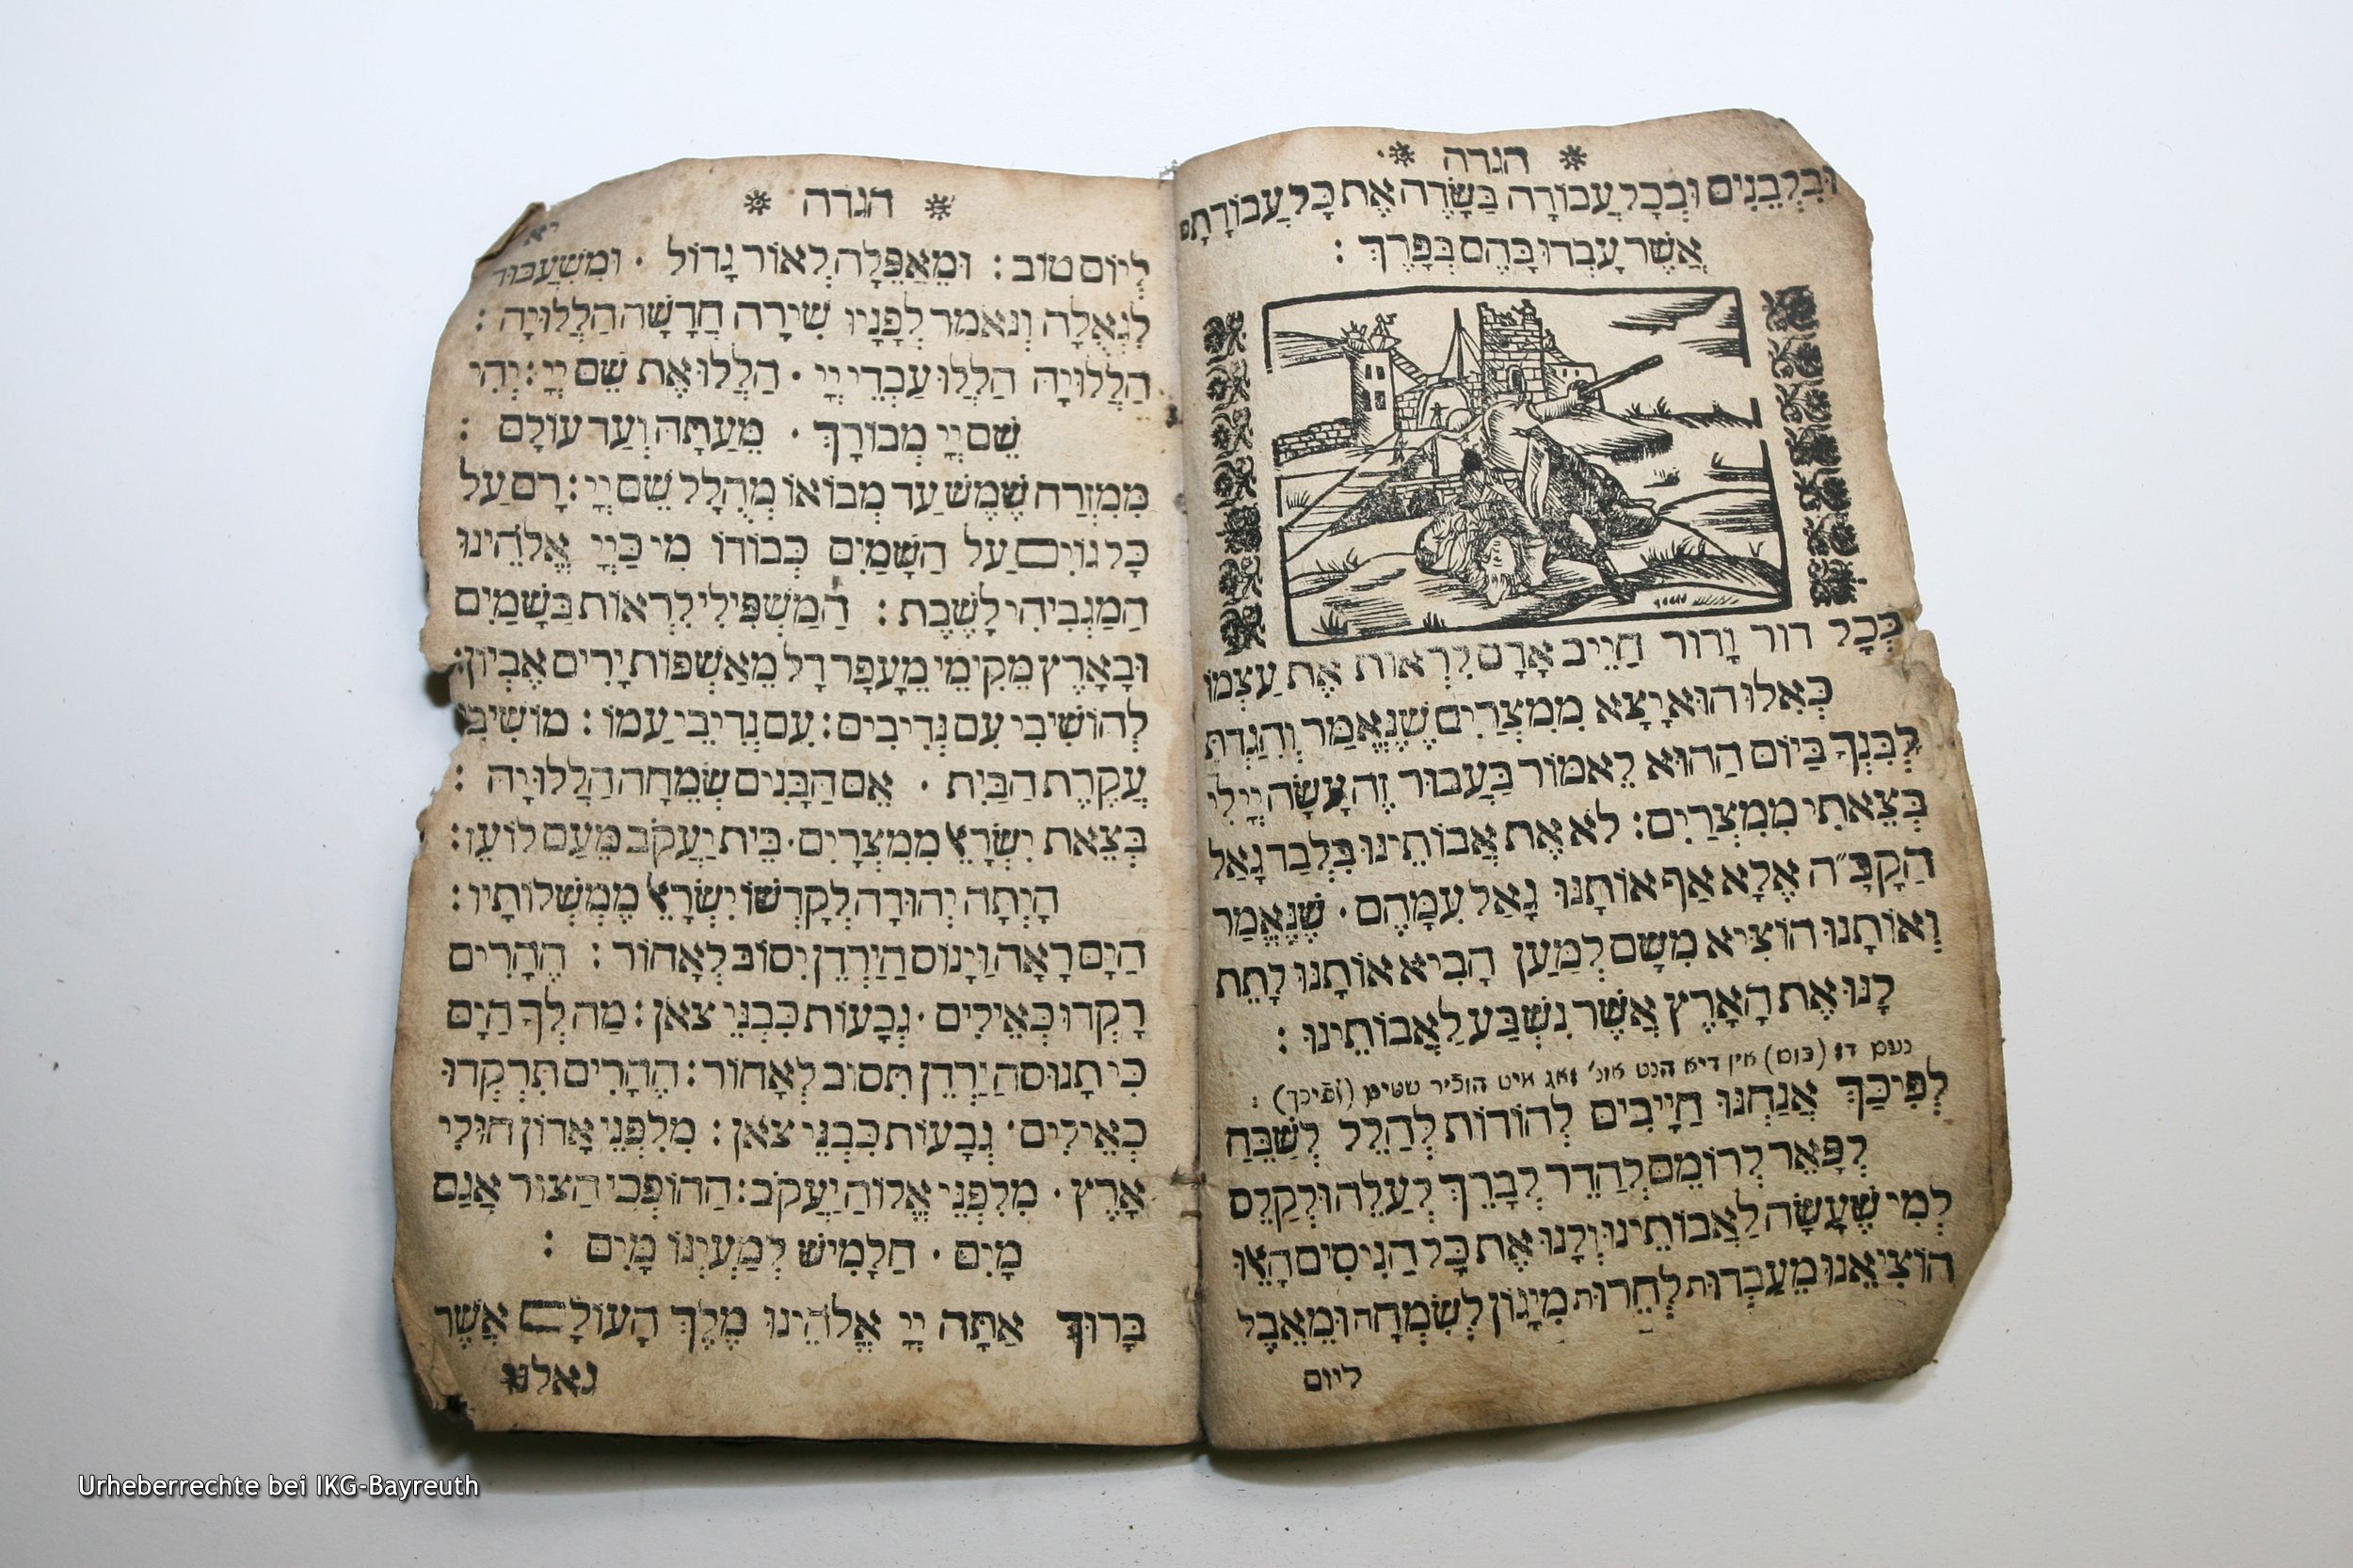 * הגדה *
וּבִלְבֵנִים וּבְכָל עֲבוֹדָה בַּשָּׂדֶה אֶת כָּל עֲבוֹדָתָם
אֲשֶׁר עָבְדוּ בָּהֶם בְּפָרֶךְ :
בְּכָל דוֹר וָדוֹר חַיֵיב אָדָם לִרְאוֹת אֶת עַצְמוֹ
כְּאִלּוּ הוּא יָצָא מִמִצְרַיִם שֶׁנֶאֱמַר וְהִגַדְתָּ
לְבִנְךָ בַּיוֹם הַהוּא לֵאמוֹר בַּעֲבוּר זֶה עָשָׂה יְיָ לִי
בְּצֵאתִי מִמִצְרַיִם: לֹא אֶת אֲבוֹתֵינוּ בִּלְבַד גָאַל
הַקָבָּ״ה אֶלָא אַף אוֹתָנוּ גָאַל עִמָהֶם · שֶׁנֶאֱמַר
וְאוֹתָנוּ הוֹצִיא מִשָׁם לְמַעַן הָבִיא אוֹתָנוּ לָתֵת
לָנוּ אֶת הָאָרֶץ אֲשֶׁר נִשְׁבַּע לַאֲבוֹתֵינוּ :
נעם דז (כוס) אין דיא הנט אונ' זאג מיט הוכֿיר שטים (לפֿיכך) :
לְפִיכַּךְ אֲנַחְנוּ חַיָיבִים לְהוֹדוֹת לְהַלֵל לְשַׁבֵּחַ
לְפָאֵר לְרוֹמֵם לְהַדֵר לְבָרֵךְ לְעַלֵה וּלְקַלֵס
לְמִי שֶׁעָשָׂה לַאֲבוֹתֵינוּ וְלָנוּ אֶת כָּל הַנִיסִים הָאֵוּ
הוֹצִיאֵנוּ מֵעַבְדוּת לְחֵרוּת מִיָגוֹן לְשִׂמְחָה וּמֵאֵבֶל
ליום
* הגדה *
יא
לְיוֹם טוֹב : וּמֵאֲפֵלָה לְאוֹר גָדוֹל · וּמִשִׁעֲבּוּד
לִגְאֻלָה וְנֹאמַר לְפָנָיו שִׁירָה חֲדָשָׁה הַלְלוּיָה :
הַלְלוּיָהּ הַלְלוּ עַבְדֵי יְיָ · הַלְלוּ אֶת שֵׁם יְיָ : יְהִי
שֵׁם יְיָ מְבוֹרָךְ · מֵעַתָּה וְעַד עוֹלָם :
מִמִזְרַח שֶׁמֶשׁ עַד מְבוֹאוֹ מְהֻלָל שֵׁם יְיָ : רָם עַל
כָּל גוֹיִם עַל הַשָׁמַיִם כְּבוֹדוֹ מִי כַּיְיָ אֱלֹהֵינוּ
הַמַגְבִיהִי לָשֶׁבֶת : הַמַשְׁפִּילִי לִרְאוֹת בַּשָׁמַיִם
וּבָאָרֶץ מְקִימִי מֵעָפָר דָל מֵאַשְׁפּוֹת יָרִים אֶבְיוֹן:
לְהוֹשִׁיבִי עִם נְדִיבִים : עִם נְדִיבֵי עַמוֹ : מוֹשִׁיבִי
עֲקֶרֶת הַבַּיִת · אֵם הַבָּנִים שְׂמֵחָה הַלְלוּיָהּ :
בְּצֵאת יִשְׂרָאֵל מִמִצְרָיִם · בֵּית יַעֲקֹב מֵעַם לוֹעֵז:
הָיְתָה יְהוּדָה לְקָדְשׁוֹ יִשְׂרָאֵל מַמְשְׁלוֹתָיו :
הַיָם רָאָה וַיָנוֹס הַיַרְדֵן יִסוֹב לְאָחוֹר : הֶהָרִים
רָקְדוּ כְּאֵילִים · גְבָעוֹת כִּבְנֵי צֹאן : מַה לְךָ הַיָם
כִּי תָנוּס הַיַרְדֵן תִּסוֹב לְאָחוֹר : הֶהָרִים תִּרְקְדוּ
כְּאֵילִים · גְבָעוֹת כִּבְנֵי צֹאן : מִלִפְנֵי אָדוֹן חוּלִי
אָרֶץ · מִלִפְנֵי אֱלוֹהַ יַעֲקֹב : הַהוֹפְכִי הַצוּר אֲגַם
מָיִם · חַלָמִישׁ לְמַעְיְנוֹ מָיִם :
בָּרוּךְ אַתָּה יְיָ אֱלֹהֵינוּ מֶלֶךְ הָעוֹלָם אֲשֶׁר
גאלנו
Urheberrechte bei IKG-Bayreuth